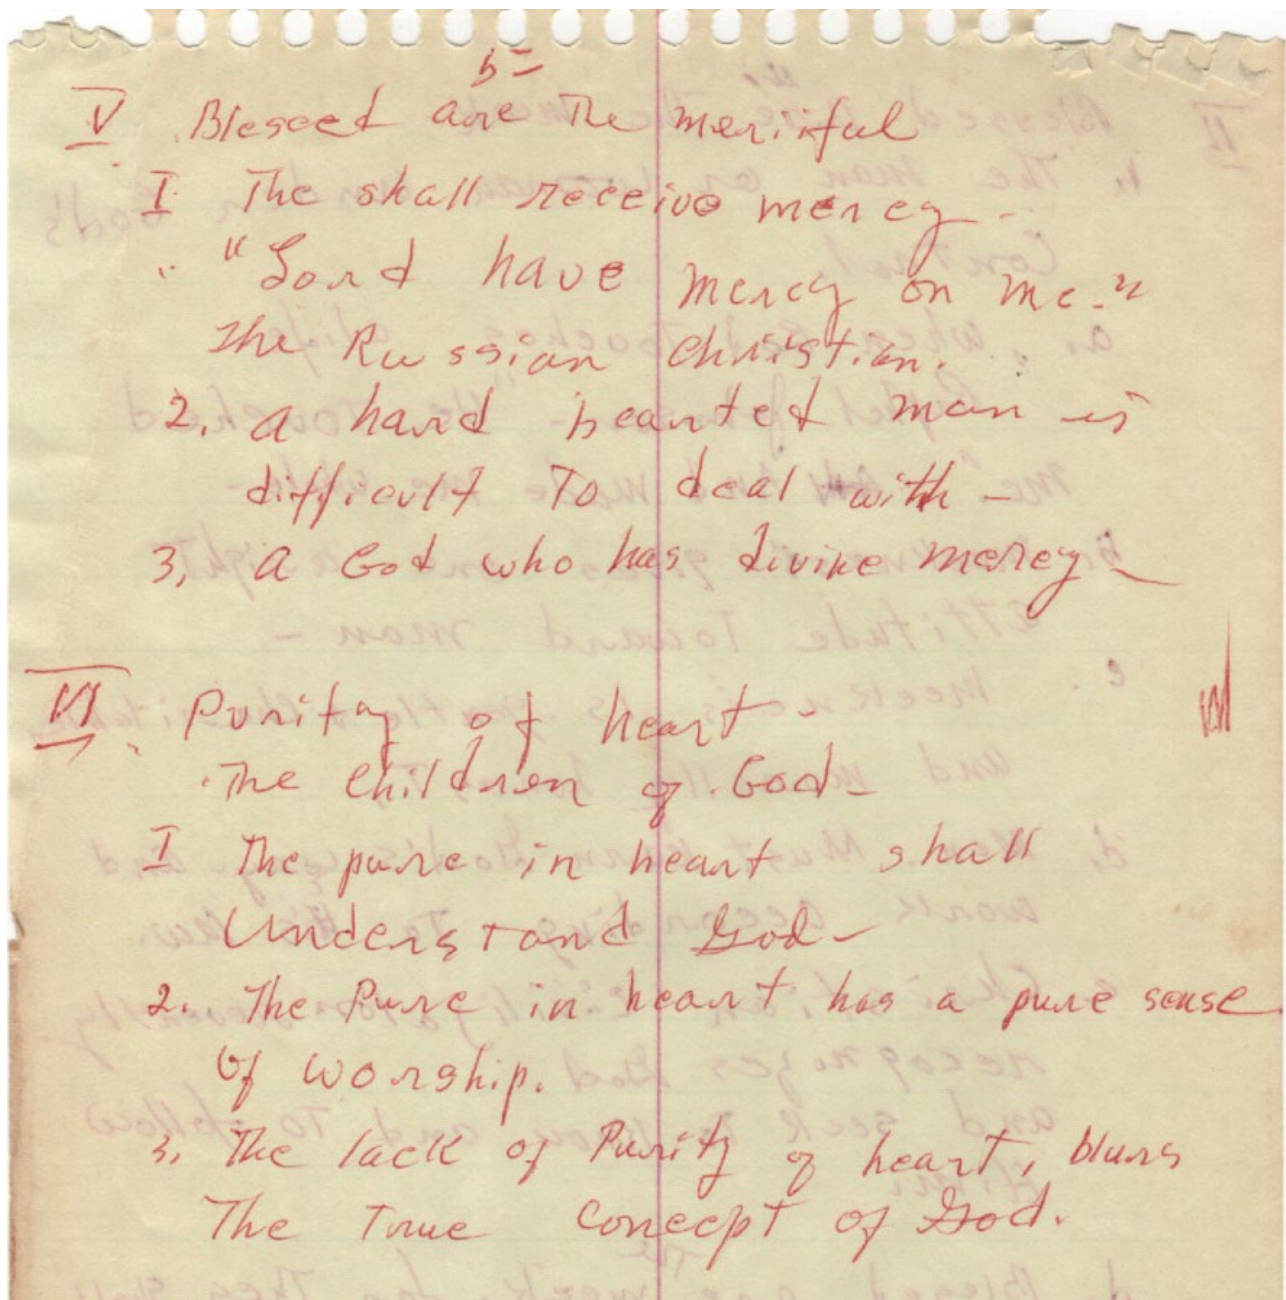 5-
V Blessed are the meriful
I The shall receive mercy -
" "Lord have mercy on me."
The Russian Christian.
2. a hard hearted man is
difficult To deal with -
3, a God who has divine mercy -
VI Purity of heart -
The Children of God -
I The pure in heart shall
Understand God -
2. The Pure in heart has a pure sense
Of worship.
3, The lack of Purity of heart, blurs
The True Concept of God.